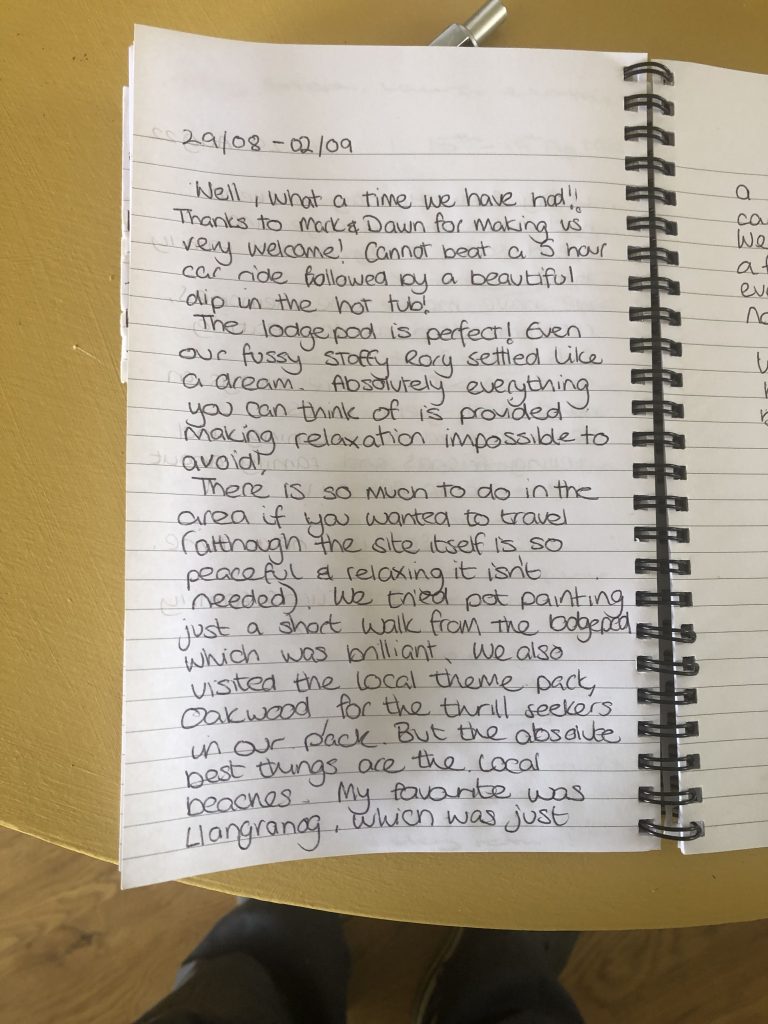 29/08 - 02/09
Well, what a time we have had!!
Thanks to Mark & Dawn for making us
very welcome! Cannot beat a 5 hour
car ride followed by a beautiful
dip in the hot tub!
The lodgepod is perfect! Even
our fussy staffy Rory settled like
a dream. Absolutely everything
you can think of is provided
making relaxation impossible to
avoid!
There is so much to do in the
area if you wanted to travel
(although the site itself is so
peaceful & relaxing it isn't
needed). We tried pot painting
just a short walk from the lodgepod
which was brilliant. We also
visited the local theme park,
Oakwood for the thrill seekers
in our pack. But the absolute
best things are the local
beaches. My favorite was
Llangranog, which was just
a
ca
we
a f
eve